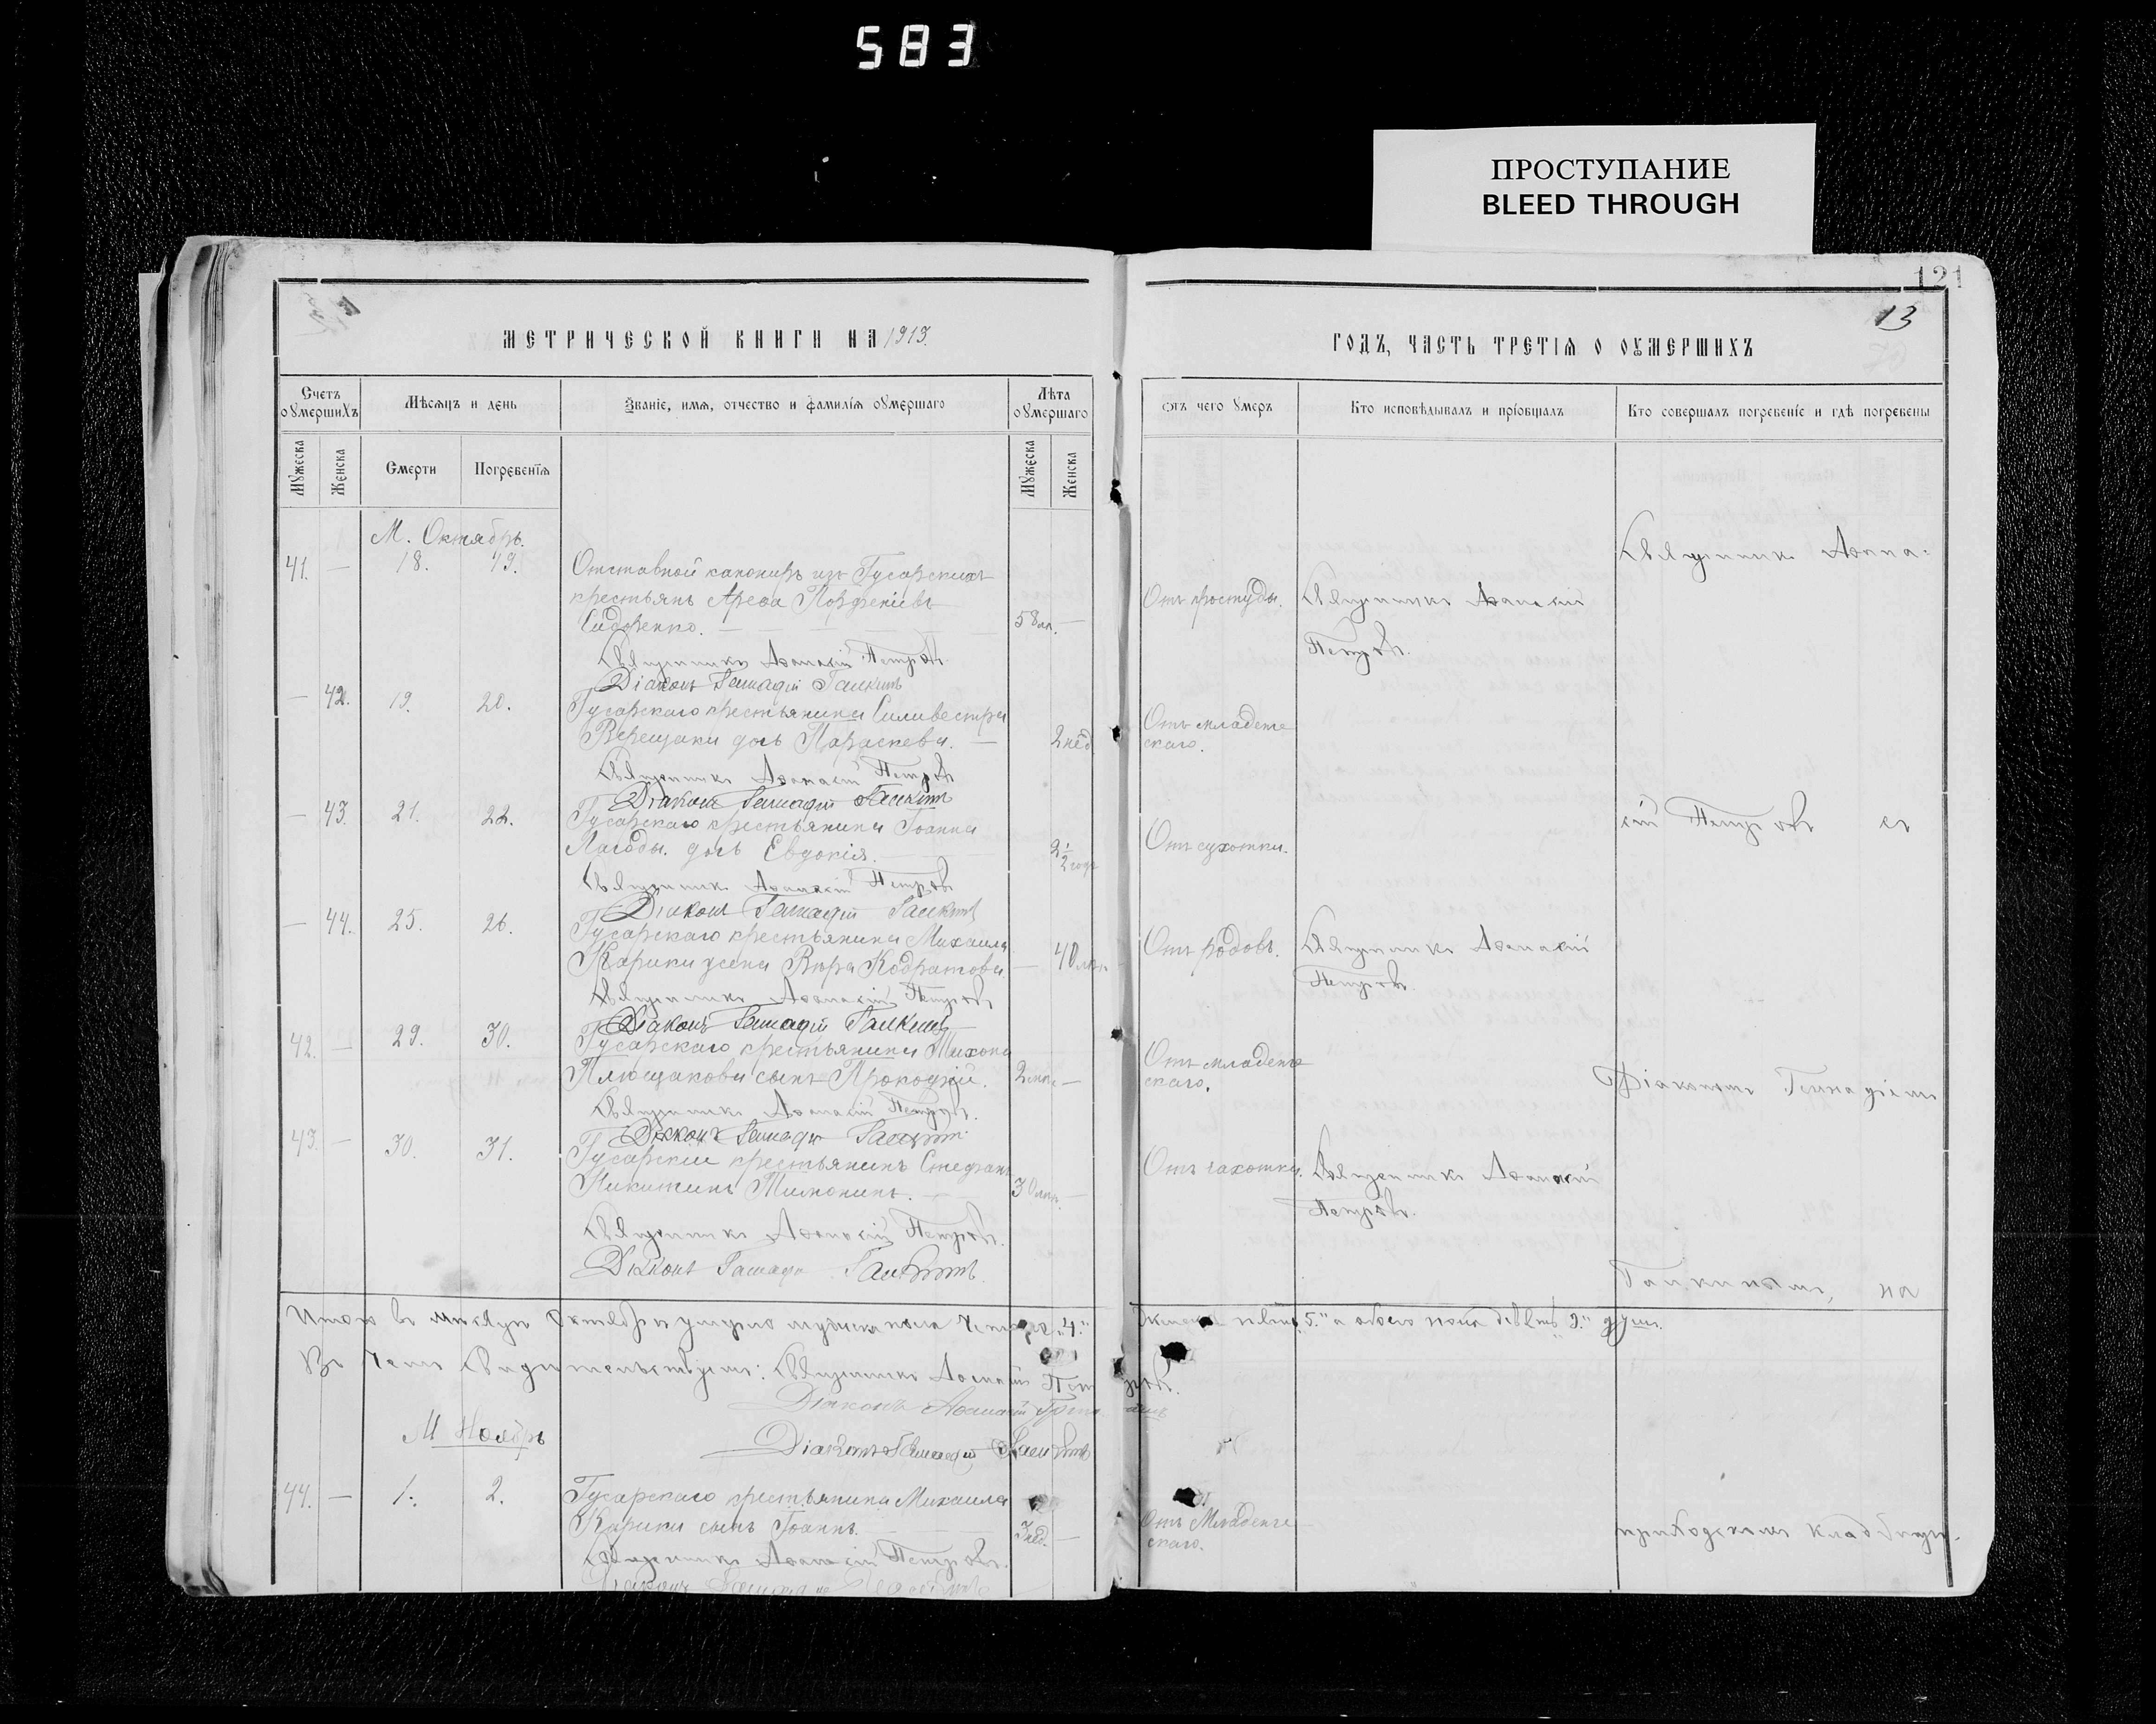 583
ПРОСТУПАНИЕ
BLEED THROUGH
121
13
МЕТРИЧЕСКОЙ КНИГИ НА 1913.
ГОДЪ, ЧАСТЬ ТРЕТІЯ О ОУМЕРШИХЪ
Счетъ оумершихъ
Мѣсяцъ и день
Званіе, имя, отчество и фамилія оумершаго
Лѣта оумершаго
отъ чего умеръ
Кто исповѣдывалъ и пріобщалъ
Кто совершалъ погребеніе и гдѣ погребены
Мужеска
Женска
Смерти
Погребенія
Мужеска
Женска
М. Октябрь.
41. — 18. 19. Отставной канониръ изъ Гусарскихъ
крестьянъ Порфеніевъ
Сидоренко. — 58 лѣт. — Отъ простуды. Священникъ Аѳанасій
Петровъ.
Священникъ Аѳана-
Священникъ Аѳанасій Петровъ.
Діаконъ Геннадій Галкинъ
— 42. 19. 20. Гусарскаго крестьянина Силивестра
Верещаки дочь Параскева. — 2 нед. Отъ младенче
скаго.
Священникъ Аѳанасій Петровъ
Діаконъ Геннадій Галкинъ
— 43. 21. 22. Гусарскаго крестьянина Іоанна
Лагоды дочь Евдокія. 2 1/2 года Отъ сухотки.
сій Петровъ съ
Священникъ Аѳанасій Петровъ
Діаконъ Геннадій Галкинъ
— 44. 25. 26. Гусарскаго крестьянина Михаила
Карики жена Вѣра Кодратова — 40 лѣт. Отъ родовъ. Священникъ Аѳанасій
Петровъ.
Священникъ Аѳанасій Петровъ
Діаконъ Геннадій Галкинъ
42. — 29. 30. Гусарскаго крестьянина Тихона
Плющакова сынъ Прокопій. 2 — Отъ младенче
скаго.
Діакономъ Геннадіемъ
Священникъ Аѳанасій Петровъ.
Діаконъ Геннадій Галкинъ
43. — 30. 31. Гусарскій крестьянинъ Стефанъ
Никитинъ Тимонинъ. — 30 лѣт. — Отъ чахотки. Священникъ Аѳанасій
Петровъ.
Священникъ Аѳанасій Петровъ.
Діаконъ Геннадій Галкинъ
Галкинымъ, на
Итого въ мѣсяцѣ Октябрѣ умерло мужеска пола четыре „4.“ женска пять „5.“ а обоего пола девять „9.“ душъ.
Въ чемъ свидѣтельствуемъ: Священникъ Аѳанасій Петровъ.
Діаконъ Аѳанасій
Діаконъ Геннадій Галкинъ
М Ноябрь
44. — 1. 2. Гусарскаго крестьянина Михаила
Карики сынъ Іоаннъ. 3 нед. — Отъ Младенче
скаго.
приходскомъ кладбищѣ.
Священникъ Аѳанасій Петровъ.
Діаконъ Геннадій Галкинъ